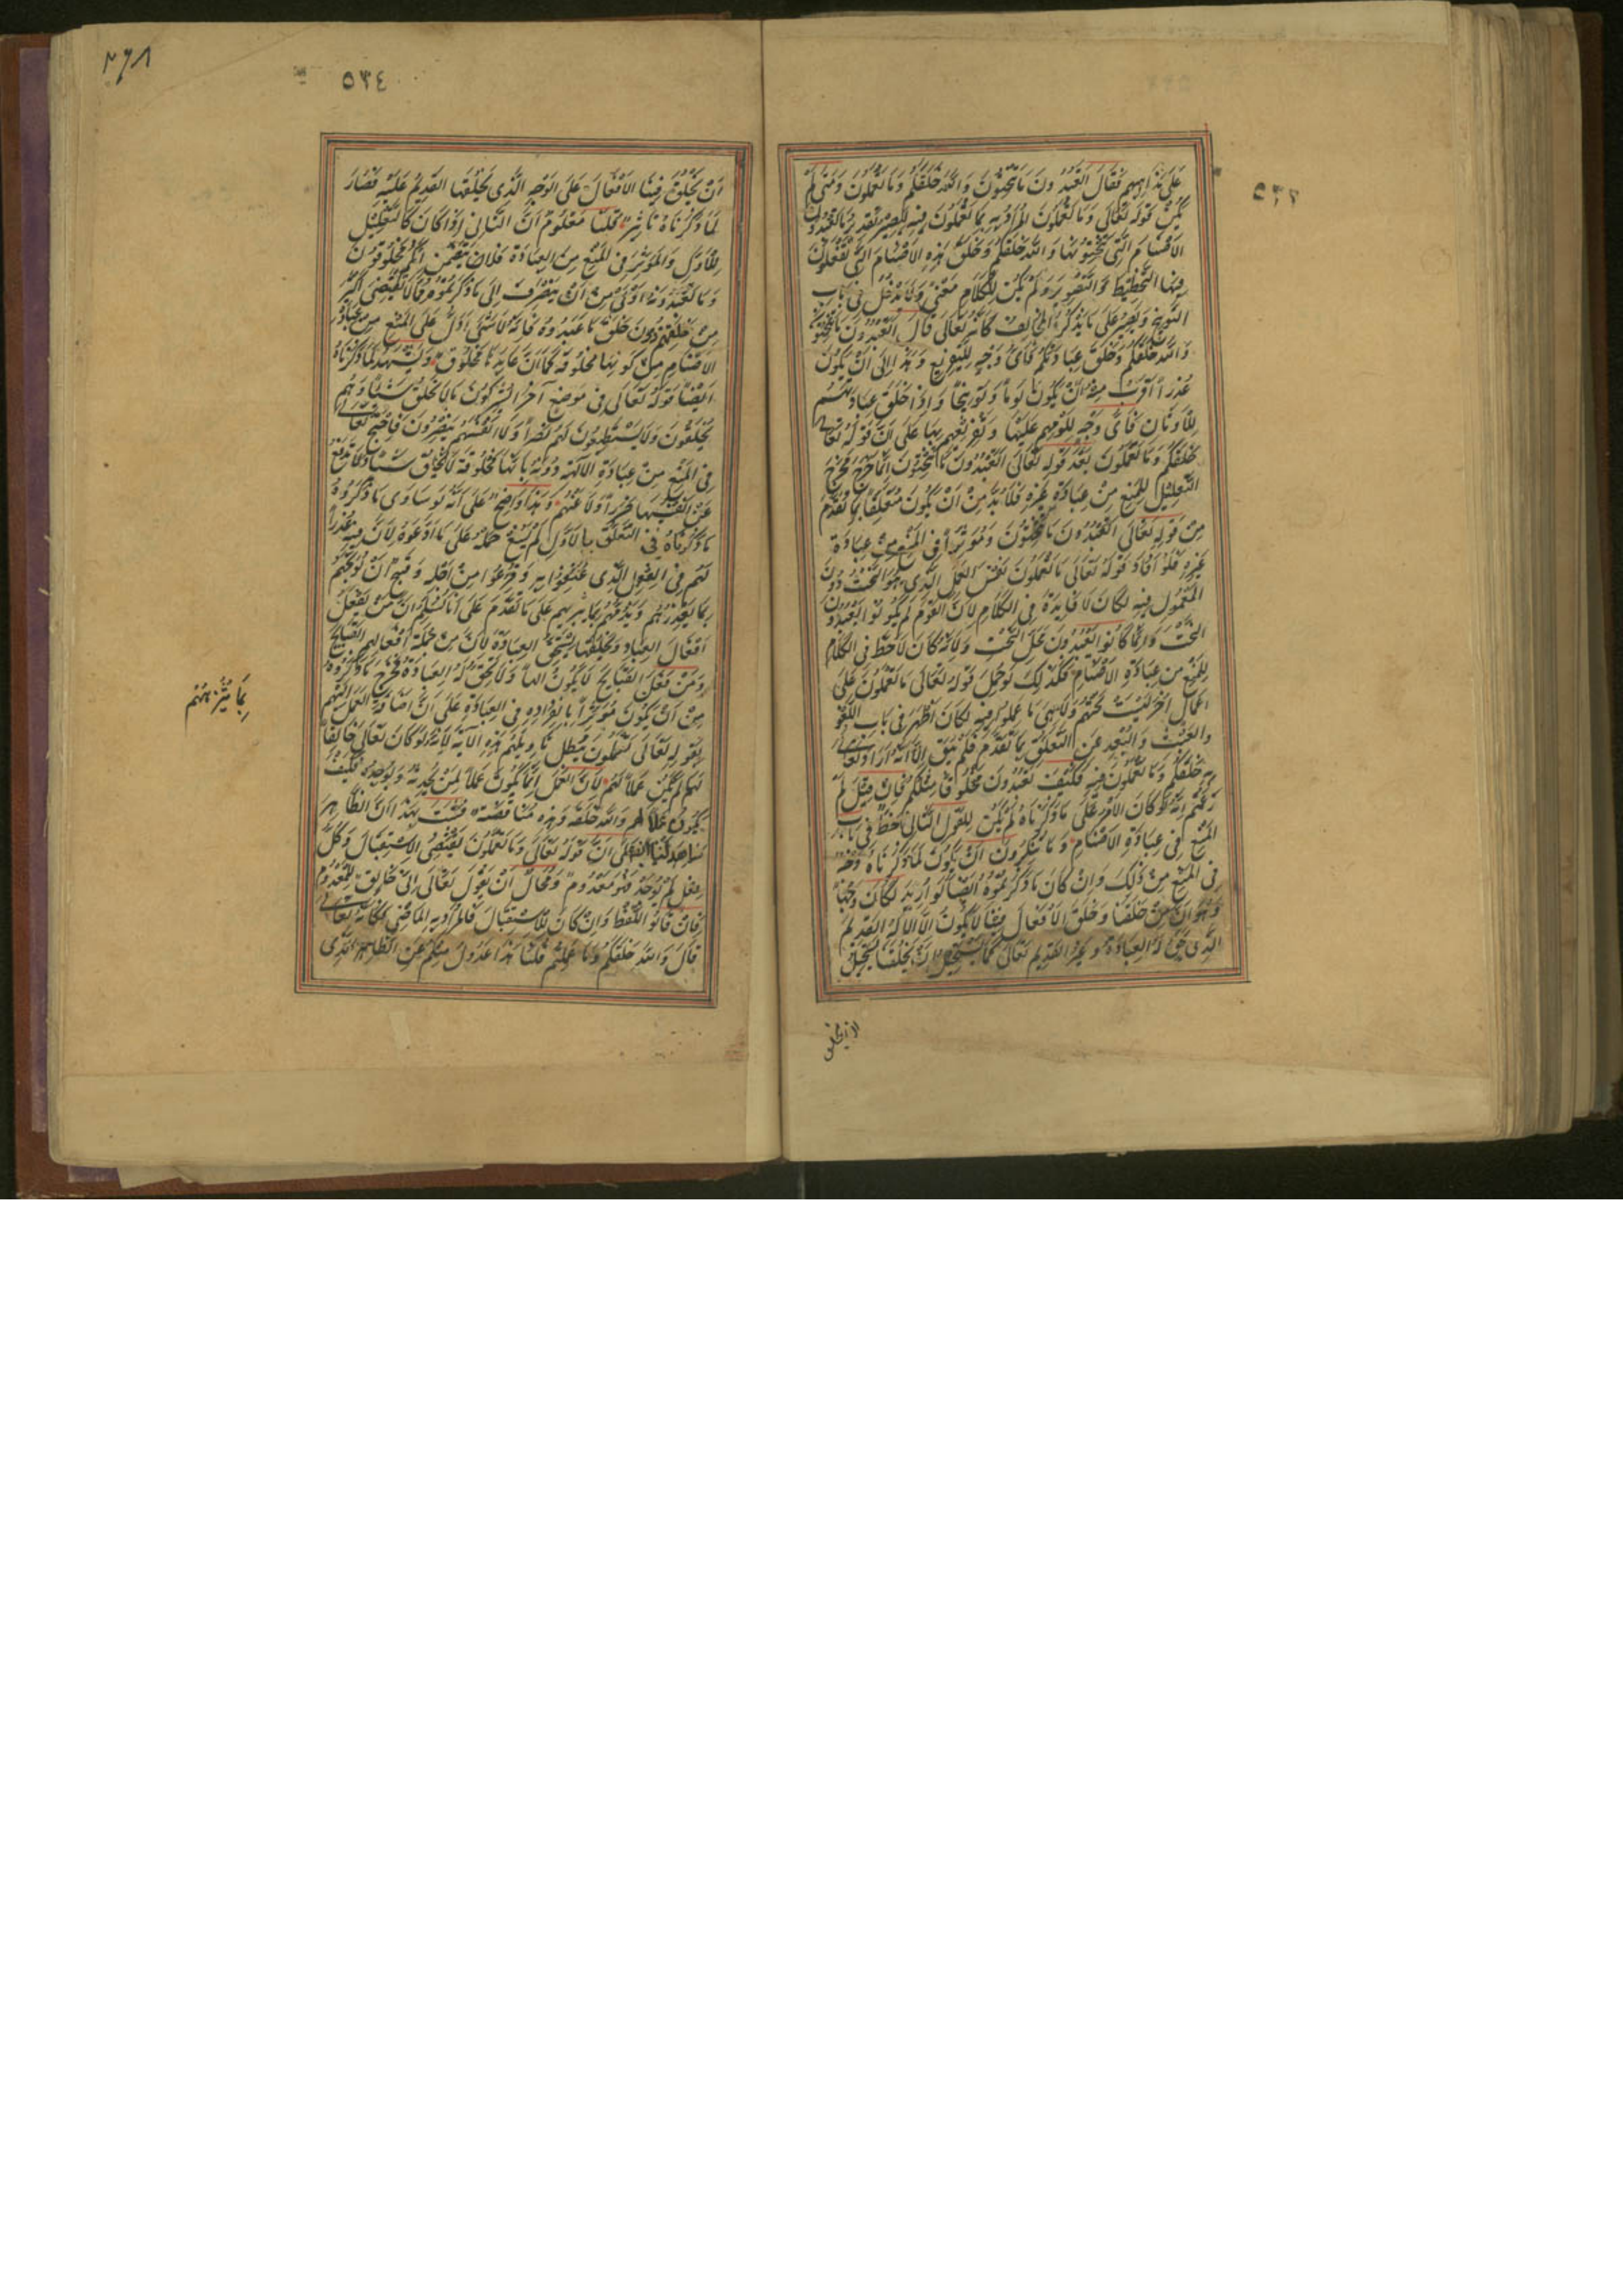 ٥٣٣
على مذاهبهم فقال اتعبدون ما تنحتون والله خلقكم وما تعملون ومتى لم
يكن قوله تعالى وما تعملون المراد به ما تعملون فيه ليصير تقدير ما تعبدون
الاصنام التي تنحتونها والله خلقكم وخلق هذه الاصنام التي تفعلون
فيها التخطيط والتصوير ولم يكن للكلام معنى ولا مدخل في باب
التوبيخ ويصير على ما يذكره المخالف كانه تعالى قال اتعبدون ما تنحتون
والله خلقكم وخلق عبادتكم فاي وجه للتقريع وهذا الى ان يكون
عذرا اقرب منه ان يكون لوما وتوبيخا واذا خلق عبادتهم
للاوثان فاي وجه للومهم عليها وتقريعهم بها على ان قوله تعالى
خلقكم وما تعملون بعد قوله تعالى اتعبدون ما تنحتون انما خرج مخرج
التعليل للمنع من عبادة غيره فلا بد من ان يكون متعلقا بما تقدم
من قوله تعالى اتعبدون ما تنحتون ومؤثرا في المنع من عبادة
غيره فلو افاد قوله تعالى ما تعملون نفس العمل الذي هو النحت دون
المعمول فيه لكان لا فايدة في الكلام لان القوم لم يكونوا يعبدون
النحت وانما كانوا يعبدون محل النحت ولانه كان لا حظ في الكلام
للمنع من عبادة الاصنام فكذلك لو حمل قوله تعالى ما تعملون على
اعمال اخر ليست نحتهم ولا هي ما عملوا فيه لكان اظهر في باب اللغو
والعبث والبعد عن التعلق بما تقدم فلم يبق الا انه اراد تعالى انه
خلقكم وما تعملون فيه فكيف تعبدون مخلوقا مثلكم فان قيل لم
زعمتم انه لو كان الامر على ما ذكرناه لم يكن للقول الثاني حظ في باب
المنع في عبادة الاصنام وما تنكرون ان يكون لما ذكرناه وجه
في المنع من ذلك وان كان ما ذكرتموه ايضا لو اريد لكان وجها
وهو ان من خلقنا وخلق الافعال فينا لا يكون الا الاله القديم
الذي تحق له العبادة وغير القديم تعالى كما يستحيل ان يخلقنا يستحيل
ان يخلق
٢٦٨
٥٣٤
ان يخلق فينا الافعال على الوجه الذي يخلقها القديم عليه فصار
لما ذكرناه تاثير قلنا معلوم ان الثاني اذا كان كالتعليل
للاول والمؤثر في المنع من العبادة فلان يتضمن انكم مخلوقون
وما تعبدونه اولى من ان ينصرف الى ما ذكرتموه مما لا تقتضي اكثر
من خلقهم دون خلق ما عبدوه فانه لا شيء ادل على المنع من عبادة
الاصنام من كونها مخلوقة كما ان عابدها مخلوق ويشهد لما ذكرناه
ايضا قوله تعالى في موضع آخر ايشركون ما لا يخلق شيئا وهم
يخلقون ولا يستطيعون لهم نصرا ولا انفسهم ينصرون فاحتج تعالى
في المنع من عبادة الالهة دونه بانها مخلوقة لا تخلق شيئا ولا تدفع
عن انفسها ضررا ولا عنهم وهذا واضح على انه لو ساوى ما ذكروه
ما ذكرناه في التعلق بالاول لم يسغ حمله على ما ادعوه لان فيه عذرا
لهم في الفعل الذي عنفوا به وقرعوا من اجله وقبيح ان يوبخهم
بما يعذرهم ويذمهم بما ينزههم على ما تقدم على انا لا نسلم ان من يفعل
افعال العباد ويخلقها يستحق العبادة لان من جملة افعالهم القبايح
ومن فعل القبايح لا يكون الها ولا تحق له العبادة فخرج ما ذكروه
من ان يكون مؤثرا بانفراده في العبادة على ان اضافة العمل اليهم
بقوله تعالى تعملون يبطل تاويلهم هذه الآية لانه لو كان تعالى خالقا
له لم يكن عملا لهم لان العمل انما يكون عملا لمن يحدثه ويوجده فكيف
يكون عملا لهم والله خلقه وهذه مناقضة فثبت بهذا ان الظاهر
شاهد لنا ايضا على ان قوله تعالى وما تعملون يقتضي الاستقبال وكل
فعل لم يوجد فهو معدوم ومحال ان يقول تعالى اني خالق للمعدوم
فان قالوا اللفظ وان كان للاستقبال فالمراد به الماضي فكانه تعالى
قال والله خلقكم وما عملتم قلنا هذا عدول منكم عن الظاهر الذي
بما ينزههم